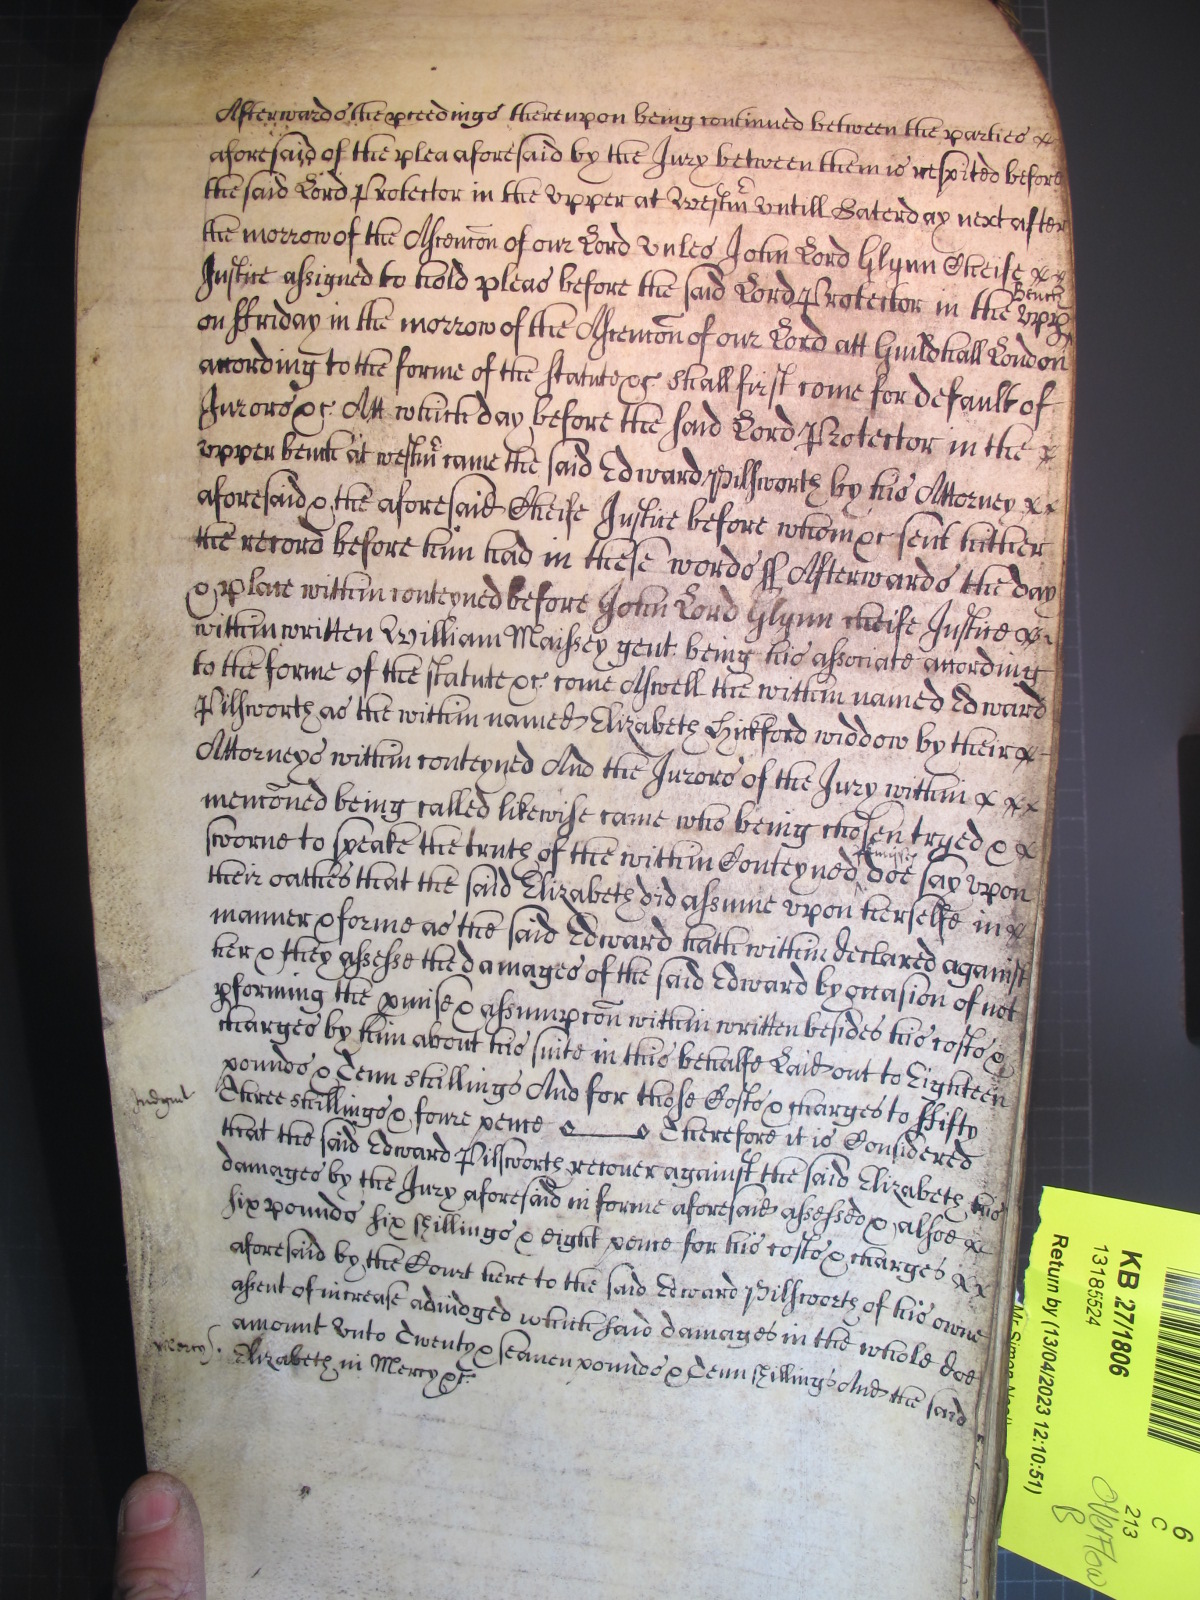 Afterwards the pceedings thereupon being continued between the parties
aforesaid of the plea aforesaid by the Jury between them is respited before
the said Lord Protector in the Upper at Westm̃ Untill Saterday next after
the morrow of the Ascencõn of our Lord Unles John Lord Glynn Cheife
Bench
Justice assigned to hold pleas before the said Lord Protector in the Vpp
on ffriday in the morrow of the Ascencõn of our Lord att Guildhall London
according to the forme of the Statute &c shall first come for default of
Jurors &c Att which day before the said Lord Protector in the
vpper bench at westm̃ came the said Edward Pilsworth by his Attorney
aforesaid & the aforesaid Cheife Justice before whom &c sent hither
the record before him had in these words ss Afterwards the day
& place within conteyned before John Lord Glynn cheife Justice
within written William Maissey gent being his associate according
to the forme of the statute &c come Aswell the within named Edward
Pilsworth as the within named Elizabeth Hickford widdow by their
Attorneys within conteyned And the Jurors of the Jury within
mencõned being called likewise came who being chosen tryed &
sworne to speake the truth of the within Conteyned doe say vpon
their oathes that the said Elizabeth did assume vpon herselfe in
manner & forme as the said Edward hath within declared against
her & they assesse the damages of the said Edward by occasion of not
pforming the pmise & assumpcõn within written besides his costs &
charges by him about his suite in this behalfe Laid out to Eighteen
pounds & Tenn shillings And for those Costs & charges to ffifty
Judgmt
Three shillings & foure pence Therefore it is Considered
that the said Edward Pilsworth recouer against the said Elizabeth his
damages by the Jury aforesaid in forme aforesaid assessed & alsoe
six pounds six shillings & eight pence for his costs & charges
aforesaid by the Court here to the said Edward Pilsworth of his owne
assent of increase adiudged which said damages in the whole doe
amount Unto Twenty & seauen pounds & Tenn shillings And the said
Mercy
Elizabeth in Mercy &c
KB 27/1806
13185524
Return by (13/04/2023 12:10:51)
6
C
213
Overflow
B